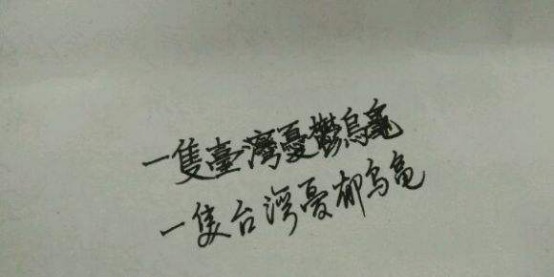 一隻臺灣憂鬱烏龜
一隻台湾憂郁乌龟